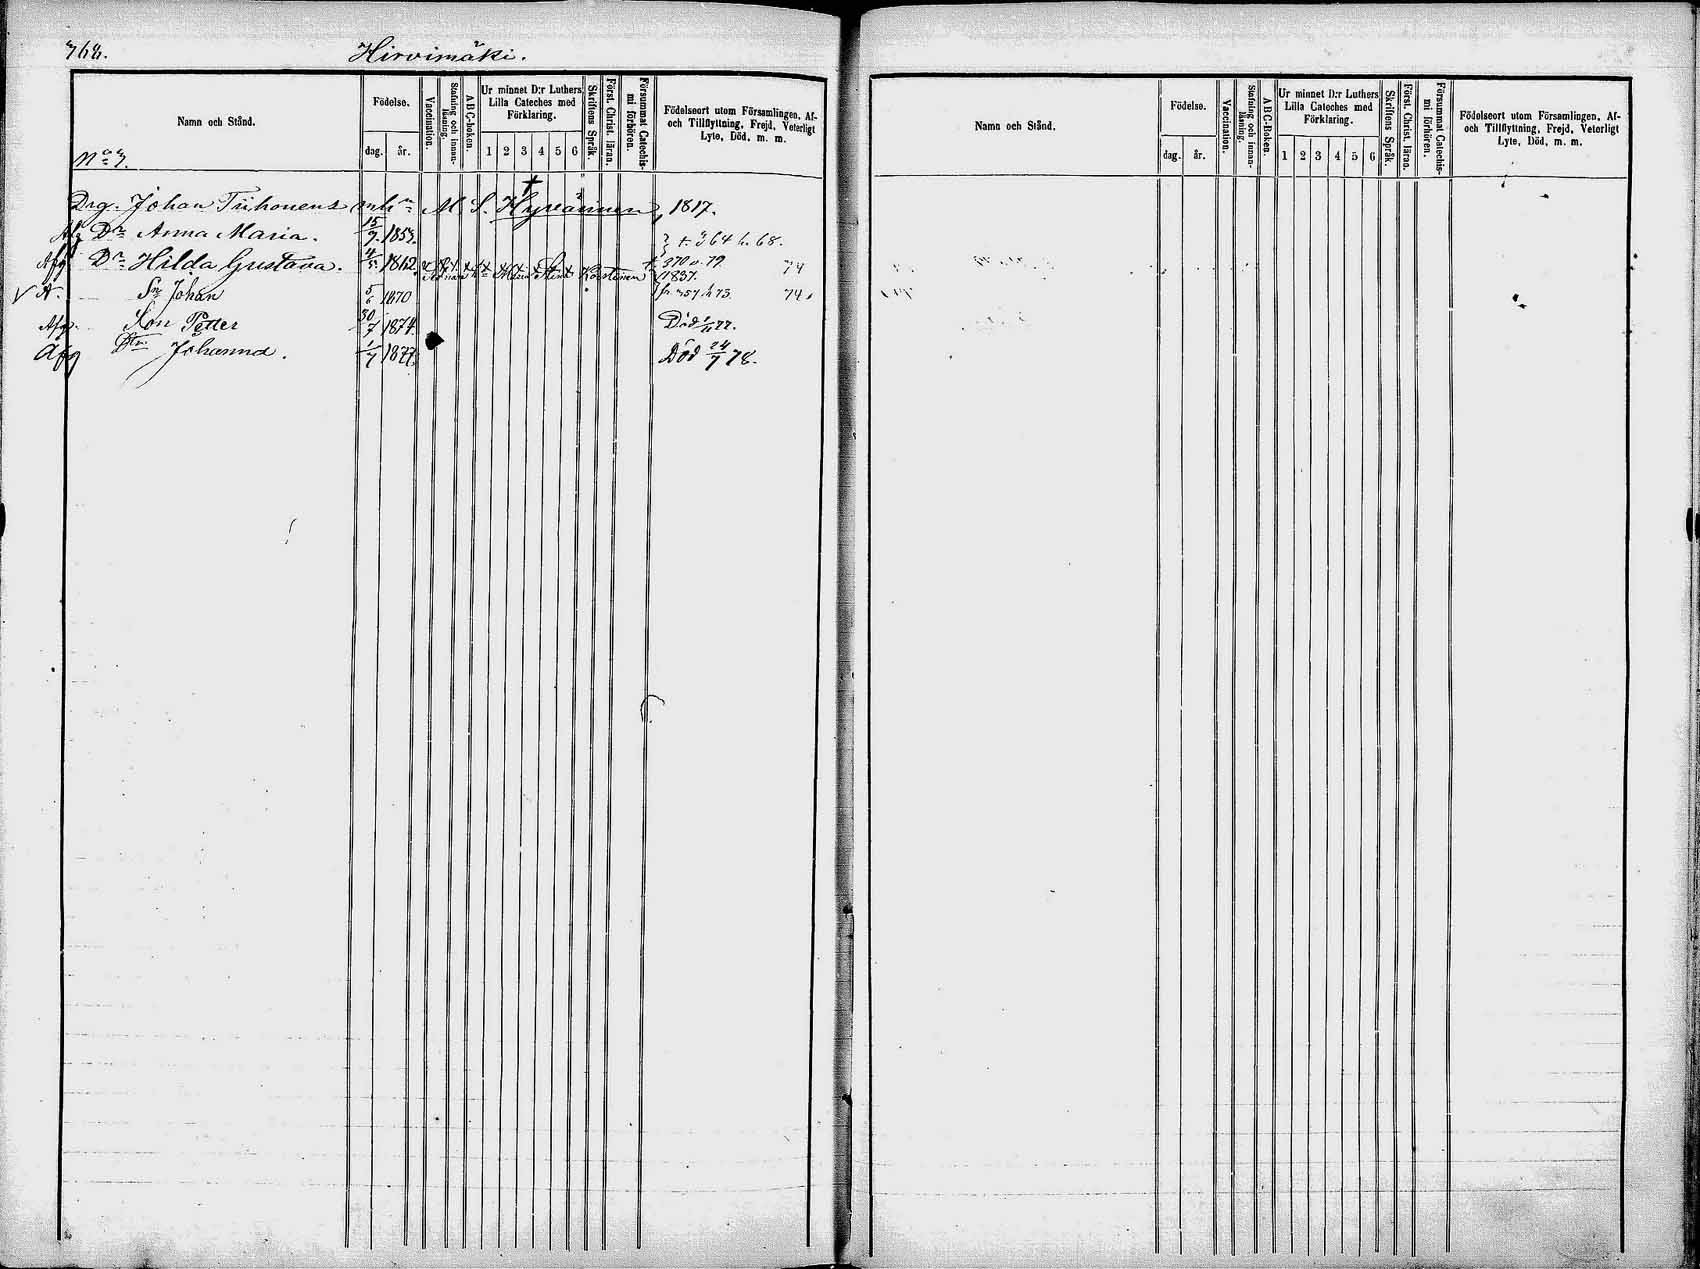 768.
Hirvimäki.
Namn och Stånd.
Födelse.
dag.
år.
Vaccination.
Stafning och innan-läsning.
ABC-boken.
Ur minnet D:r Luthers
Lilla Cateches med
Förklaring.
1 2 3 4 5 6
Skriftens Språk.
Först. Christ. läran.
Försummat Catechis-mi förhören.
Födelseort utom Församlingen, Af-
och Tillflyttning, Frejd, Veterligt
Lyte, Död, m. m.
Drg. Johan Tiihonens M. S. Hyvärinen, 1817.
Dr Anna Maria. 15/7 1853. 64 h. 68.
Afg Dr Hilda Gustava. 4/5 1862. 370 v. 79. 74
Maria Stina 1837.
Sn Johan 5/6 1870 fr 757 h 73. 74.
Afg. Son Petter 30/7 1874. Död 77.
Afg Dtr. Johanna. 1/7 1877. Död 24/7 78.
Namn och Stånd.
Födelse.
dag.
år.
Vaccination.
Stafning och innan-läsning.
ABC-Boken.
Ur minnet D:r Luthers
Lilla Cateches med
Förklaring.
1 2 3 4 5 6
Skriftens Språk.
Först. Christ. läran.
Försummat Catechis-mi förhören.
Födelseort utom Församlingen, Af-
och Tillflyttning, Frejd, Veterligt
Lyte, Död, m. m.